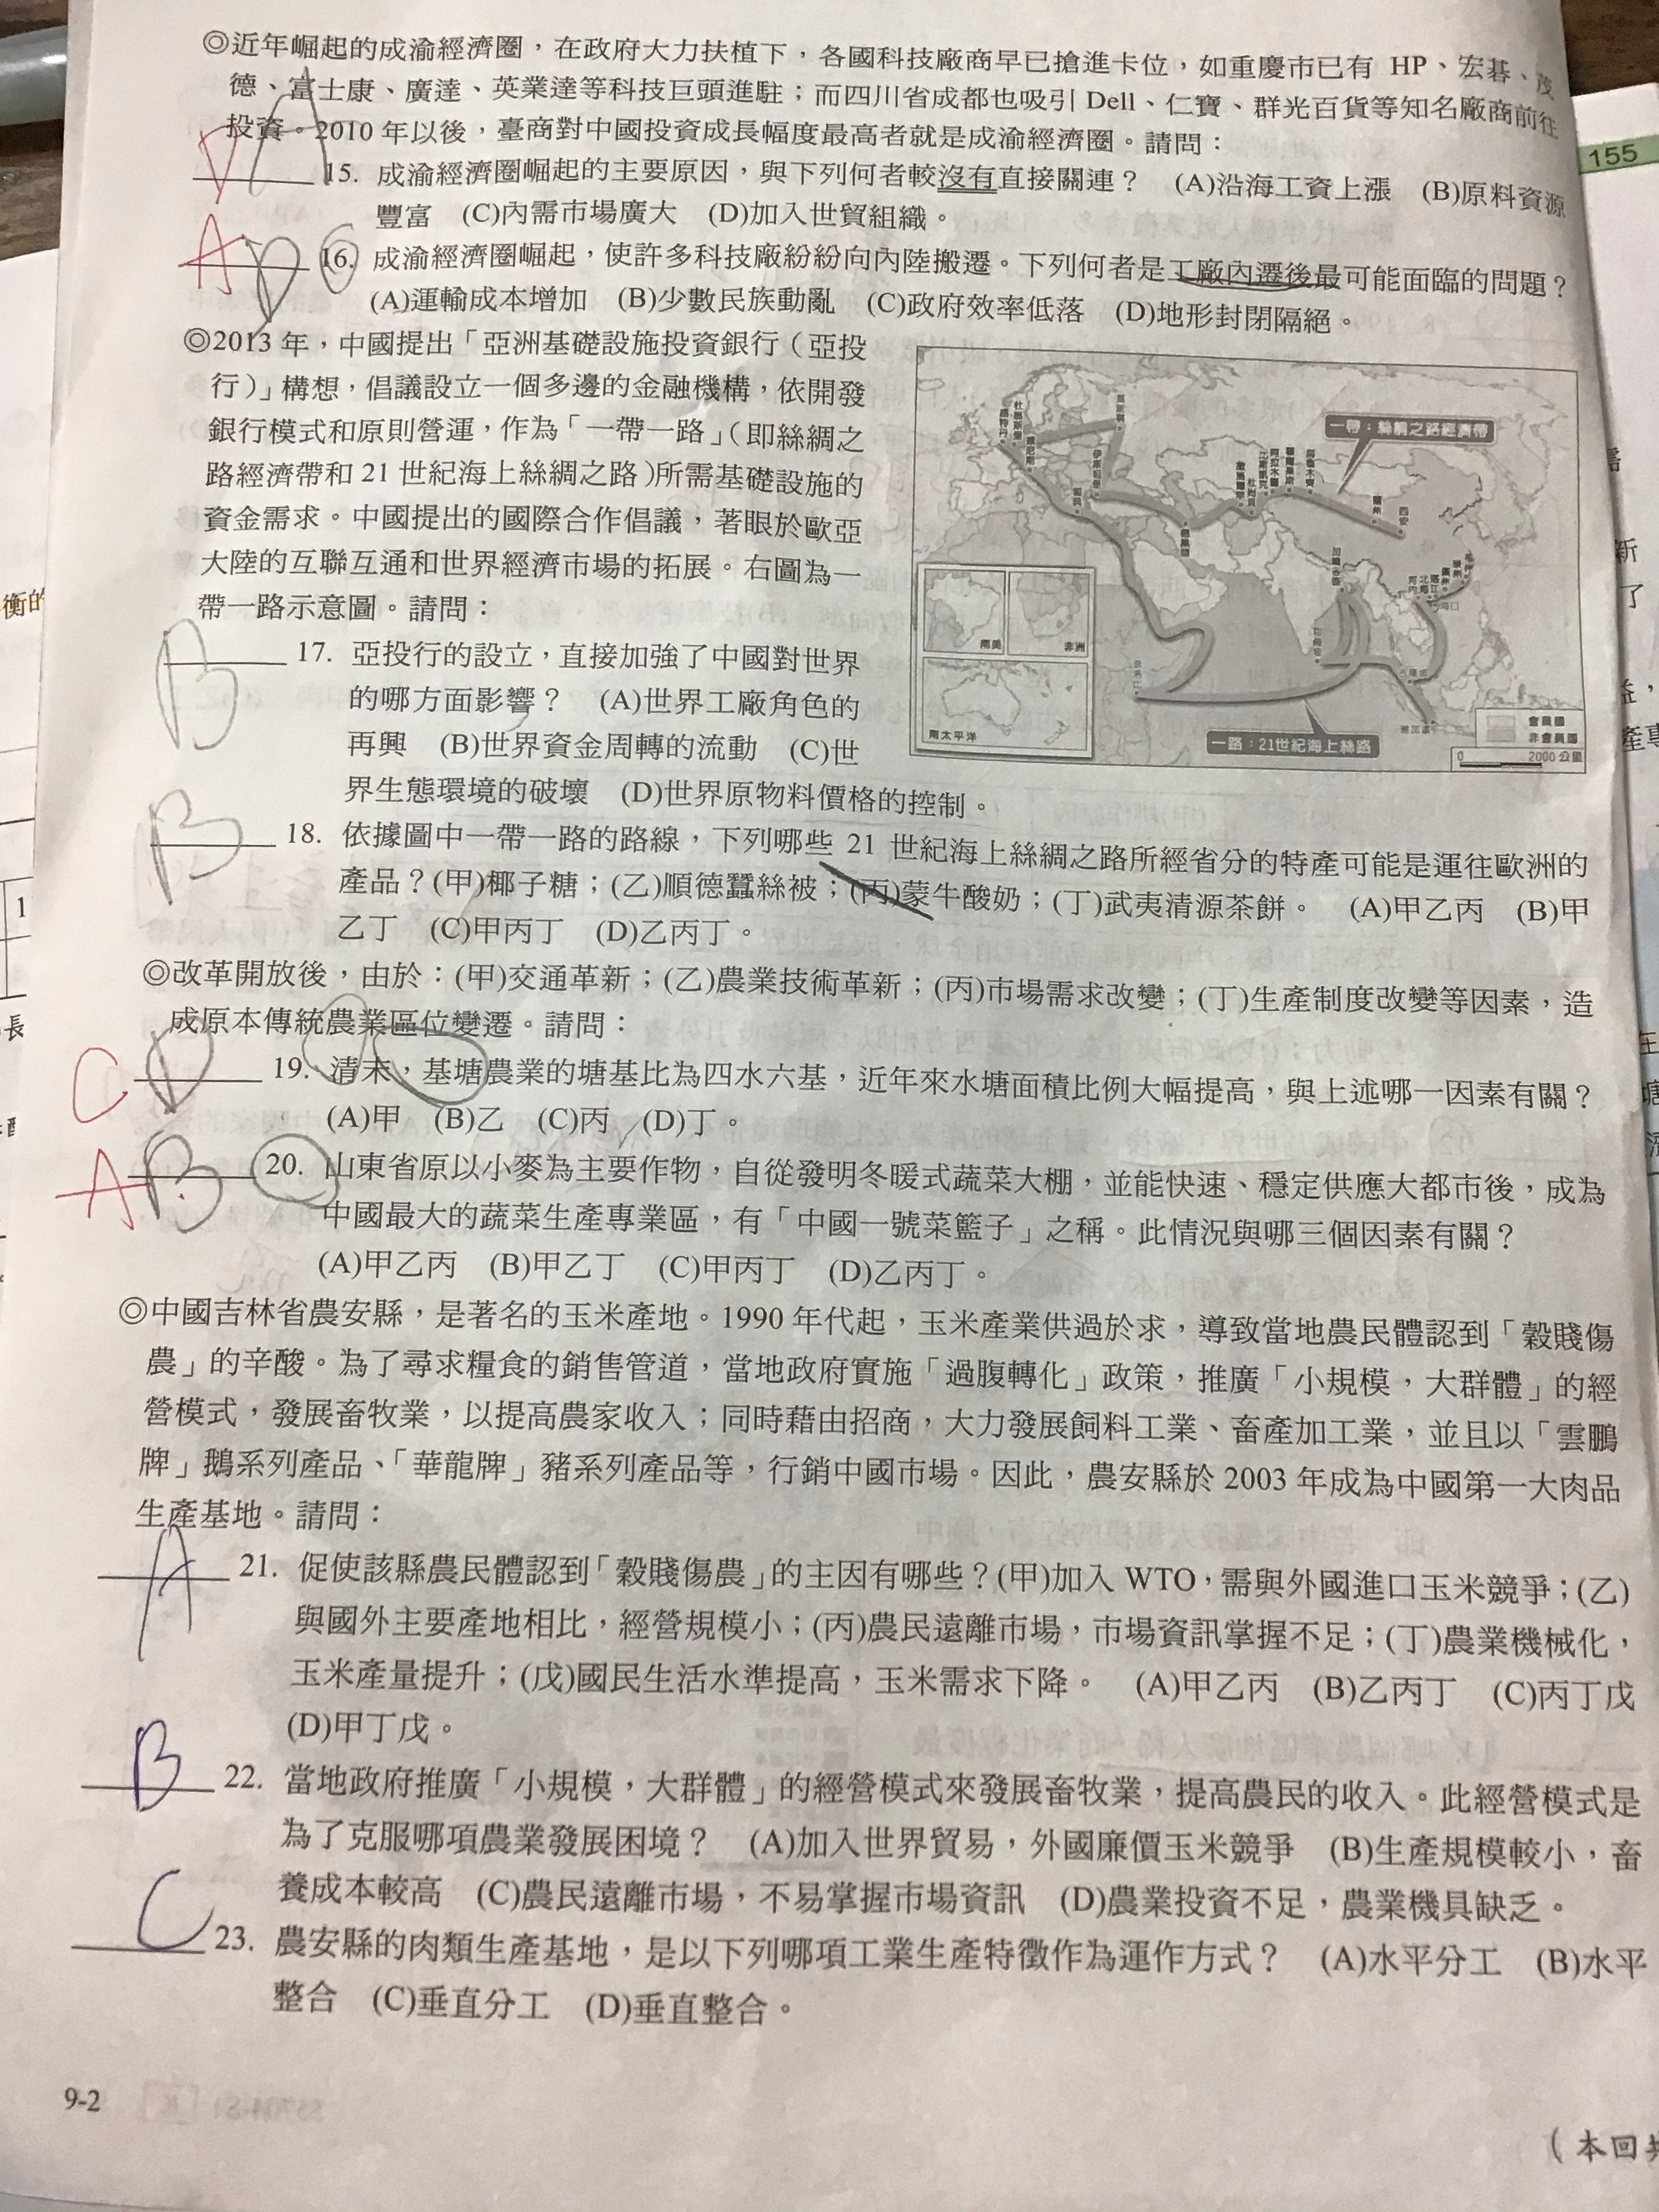 ◎近年崛起的成渝經濟圈，在政府大力扶植下，各國科技廠商早已搶進卡位，如重慶市已有 HP、宏碁、茂
德、富士康、廣達、英業達等科技巨頭進駐；而四川省成都也吸引 Dell、仁寶、群光百貨等知名廠商前往
投資。2010 年以後，臺商對中國投資成長幅度最高者就是成渝經濟圈。請問：
155
D A 15. 成渝經濟圈崛起的主要原因，與下列何者較沒有直接關連？ (A)沿海工資上漲 (B)原料資源
豐富 (C)內需市場廣大 (D)加入世貿組織。
A D 16. 成渝經濟圈崛起，使許多科技廠紛紛向內陸搬遷。下列何者是工廠內遷後最可能面臨的問題？
(A)運輸成本增加 (B)少數民族動亂 (C)政府效率低落 (D)地形封閉隔絕。
◎2013 年，中國提出「亞洲基礎設施投資銀行（亞投
行）」構想，倡議設立一個多邊的金融機構，依開發
銀行模式和原則營運，作為「一帶一路」（即絲綢之
路經濟帶和 21 世紀海上絲綢之路）所需基礎設施的
資金需求。中國提出的國際合作倡議，著眼於歐亞
大陸的互聯互通和世界經濟市場的拓展。右圖為一
帶一路示意圖。請問：
一帶：絲綢之路經濟帶
西安
南美
非洲
南太平洋
一路：21世紀海上絲路
會員國
非會員國
0 2000 公里
B 17. 亞投行的設立，直接加強了中國對世界
的哪方面影響？ (A)世界工廠角色的
再興 (B)世界資金周轉的流動 (C)世
界生態環境的破壞 (D)世界原物料價格的控制。
B 18. 依據圖中一帶一路的路線，下列哪些 21 世紀海上絲綢之路所經省分的特產可能是運往歐洲的
產品？(甲)椰子糖；(乙)順德蠶絲被；(丙)蒙牛酸奶；(丁)武夷清源茶餅。 (A)甲乙丙 (B)甲
乙丁 (C)甲丙丁 (D)乙丙丁。
◎改革開放後，由於：(甲)交通革新；(乙)農業技術革新；(丙)市場需求改變；(丁)生產制度改變等因素，造
成原本傳統農業區位變遷。請問：
C D 19. 清末，基塘農業的塘基比為四水六基，近年來水塘面積比例大幅提高，與上述哪一因素有關？
(A)甲 (B)乙 (C)丙 (D)丁。
A B 20. 山東省原以小麥為主要作物，自從發明冬暖式蔬菜大棚，並能快速、穩定供應大都市後，成為
中國最大的蔬菜生產專業區，有「中國一號菜籃子」之稱。此情況與哪三個因素有關？
(A)甲乙丙 (B)甲乙丁 (C)甲丙丁 (D)乙丙丁。
◎中國吉林省農安縣，是著名的玉米產地。1990 年代起，玉米產業供過於求，導致當地農民體認到「穀賤傷
農」的辛酸。為了尋求糧食的銷售管道，當地政府實施「過腹轉化」政策，推廣「小規模，大群體」的經
營模式，發展畜牧業，以提高農家收入；同時藉由招商，大力發展飼料工業、畜產加工業，並且以「雲鵬
牌」鵝系列產品、「華龍牌」豬系列產品等，行銷中國市場。因此，農安縣於 2003 年成為中國第一大肉品
生產基地。請問：
A 21. 促使該縣農民體認到「穀賤傷農」的主因有哪些？(甲)加入 WTO，需與外國進口玉米競爭；(乙)
與國外主要產地相比，經營規模小；(丙)農民遠離市場，市場資訊掌握不足；(丁)農業機械化，
玉米產量提升；(戊)國民生活水準提高，玉米需求下降。 (A)甲乙丙 (B)乙丙丁 (C)丙丁戊
(D)甲丁戊。
B 22. 當地政府推廣「小規模，大群體」的經營模式來發展畜牧業，提高農民的收入。此經營模式是
為了克服哪項農業發展困境？ (A)加入世界貿易，外國廉價玉米競爭 (B)生產規模較小，畜
養成本較高 (C)農民遠離市場，不易掌握市場資訊 (D)農業投資不足，農業機具缺乏。
C 23. 農安縣的肉類生產基地，是以下列哪項工業生產特徵作為運作方式？ (A)水平分工 (B)水平
整合 (C)垂直分工 (D)垂直整合。
9-2
（本回共